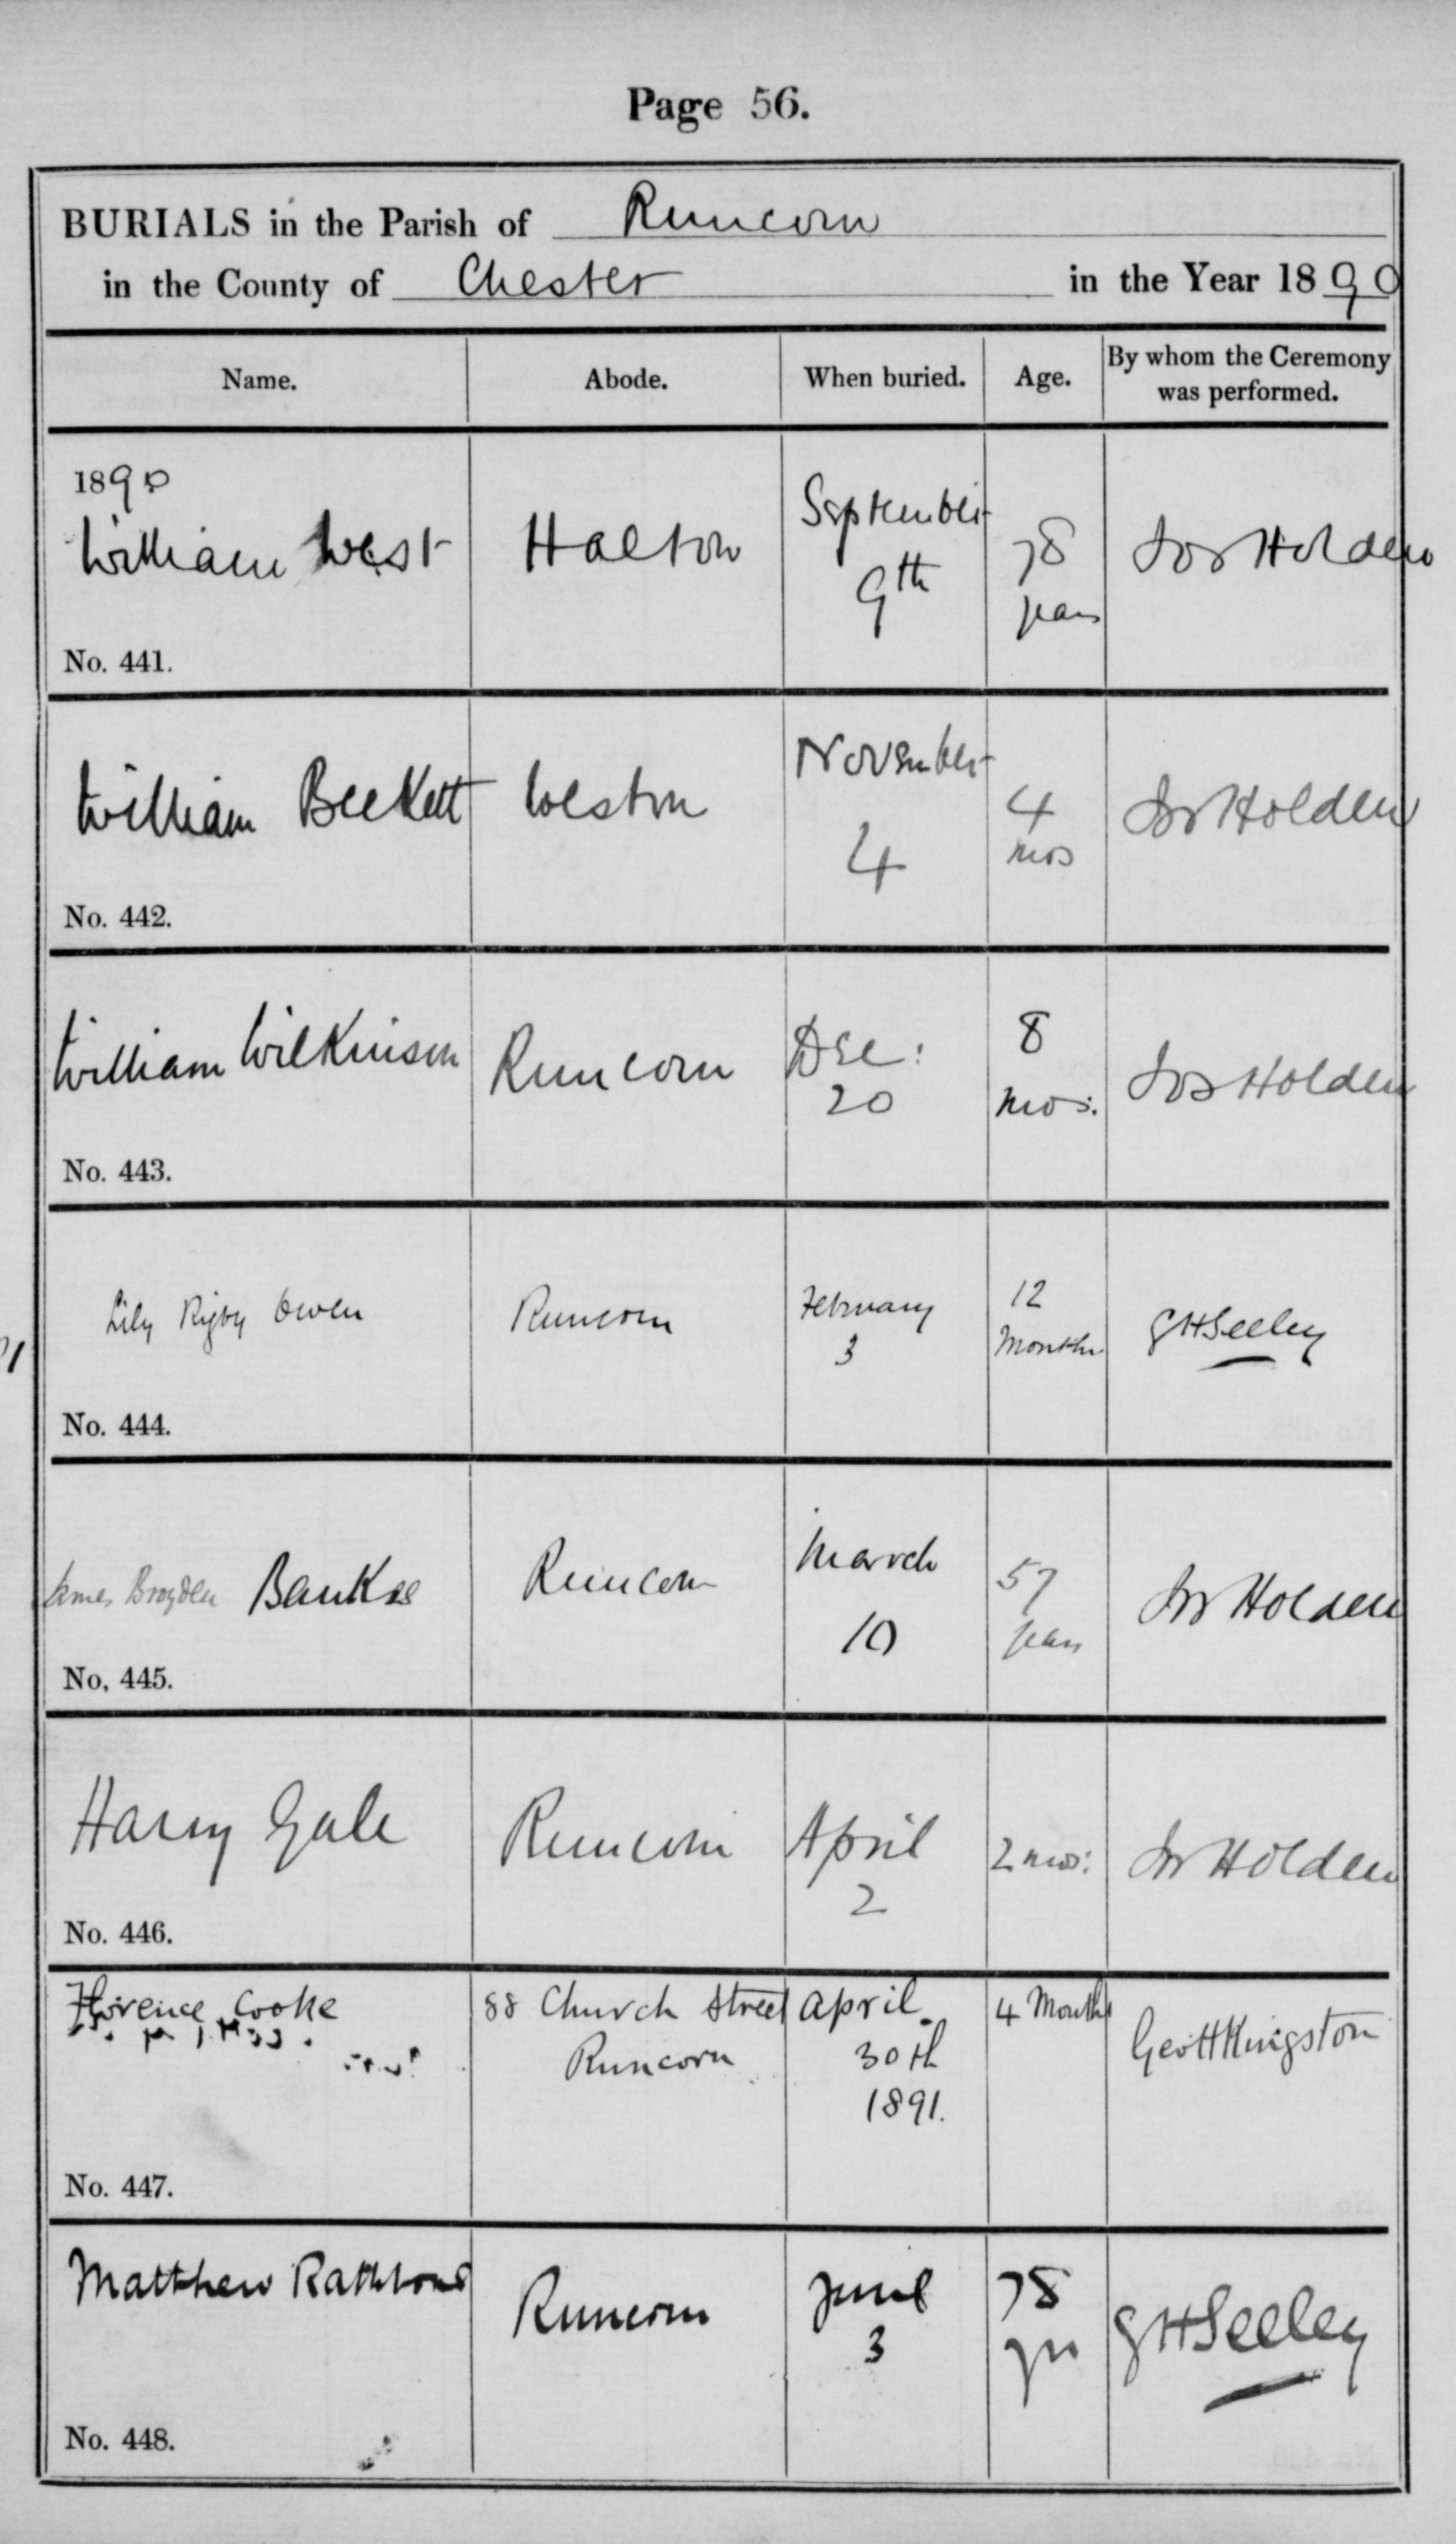 Page 56.
BURIALS in the Parish of Runcorn
in the County of Chester in the Year 1890
Name. Abode. When buried. Age. By whom the Ceremony was performed.
1890
William West Halton September 9th 78 years Jos Holden
No. 441.
William Beckett Weston November 4 4 mos Jos Holden
No. 442.
William Wilkinson Runcorn Dec: 20 8 mos: Jos Holden
No. 443.
Lily Rigby Owen Runcorn February 3 12 Months GHSeeley
No. 444.
James Brogden Bankes Runcorn March 10 57 years Jos Holden
No. 445.
Harry Gale Runcorn April 2 2 mos: Jos Holden
No. 446.
Florence Cooke 88 Church Street Runcorn April 30th 1891. 4 Months Geo H Kingston
No. 447.
Matthew Rathbone Runcorn June 3 78 yrs GHSeeley
No. 448.